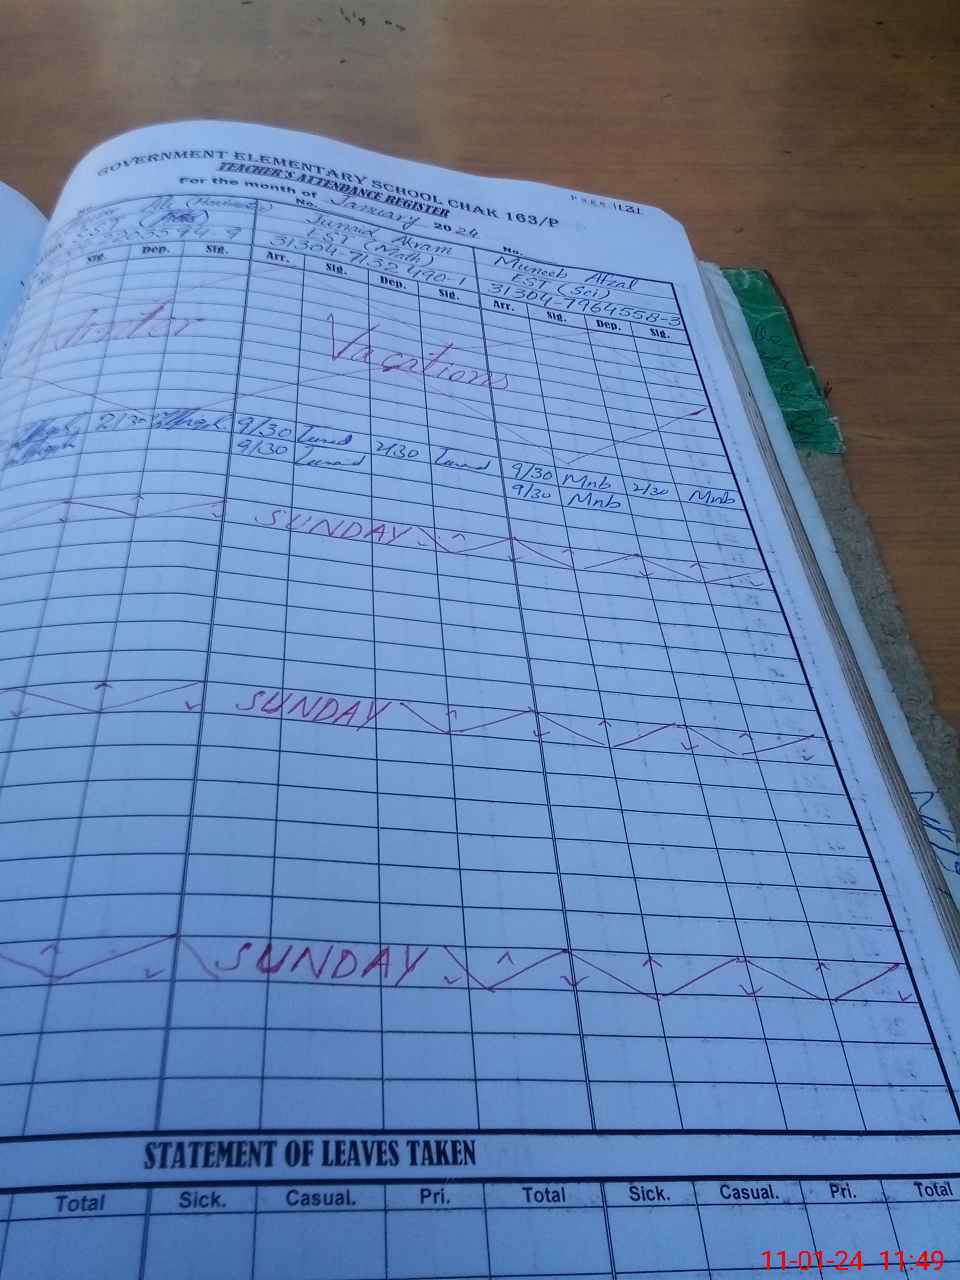 GOVERNMENT ELEMENTARY SCHOOL CHAK 163/P
TEACHER'S ATTENDANCE REGISTER
Page
For the month of January 2024
No. No.
Junaid Akram Muneeb Afzal
EST (Math) EST (Sci)
31304-7132490-1 31304-7964558-3
Sig. Dep. Sig. Arr. Sig. Dep. Sig. Arr. Sig. Dep. Sig.
Winter Vacations
2/30 9/30 Junaid 2/30 Junaid 9/30 Mnb 2/30 Mnb
9/30 Junaid 9/30 Mnb
SUNDAY
SUNDAY
SUNDAY
STATEMENT OF LEAVES TAKEN
Total Sick. Casual. Pri. Total Sick. Casual. Pri. Total
11-01-24 11:49